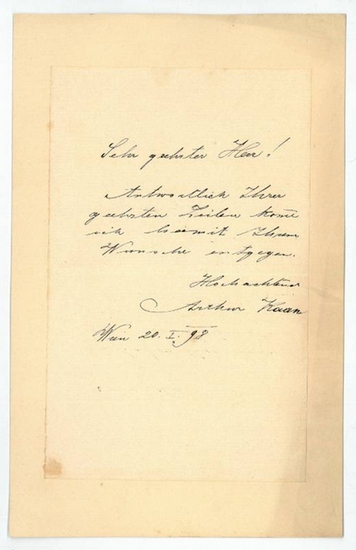 Sehr geehrter Herr!
Antwortlich Ihrer
geehrten Zeilen kome
ich hiermit Ihrem
Wunsche entgegen.
Hochachtend
Arthur Kaan
Wien 20. I. 98